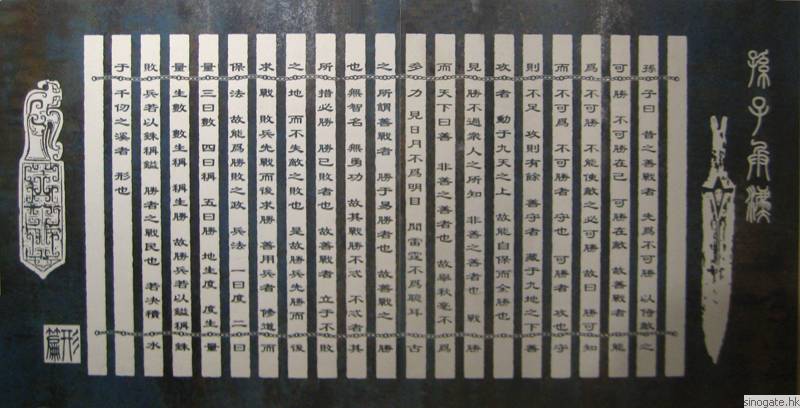 孫子兵法
孫子曰 昔之善戰者 先爲不可勝 以待敵之
可勝 不可勝在己 可勝在敵 故善戰者 能
爲不可勝 不能使敵之必可勝 故曰 勝可知
而不可爲 不可勝者 守也 可勝者 攻也 守
則不足 攻則有餘 善守者 藏于九地之下 善
攻者 動于九天之上 故能自保而全勝也
見勝不過衆人之所知 非善之善者也 戰勝
而天下曰善 非善之善者也 故舉秋毫不爲
多力 見日月不爲明目 聞雷霆不爲聰耳 古
之所謂善戰者 勝于易勝者也 故善戰之勝
也 無智名 無勇功 故其戰勝不忒 不忒者其
所措必勝 勝已敗者也 故善戰者 立于不敗
之地 而不失敵之敗也 是故勝兵先勝而後
求戰 敗兵先戰而後求勝 善用兵者 修道而
保法 故能爲勝敗之政 兵法 一曰度 二曰
量 三曰數 四曰稱 五曰勝 地生度 度生量
量生數 數生稱 稱生勝 故勝兵若以鎰稱銖
敗兵若以銖稱鎰 勝者之戰民也 若決積水
于千仞之溪者 形也
形篇
sinogate.hk